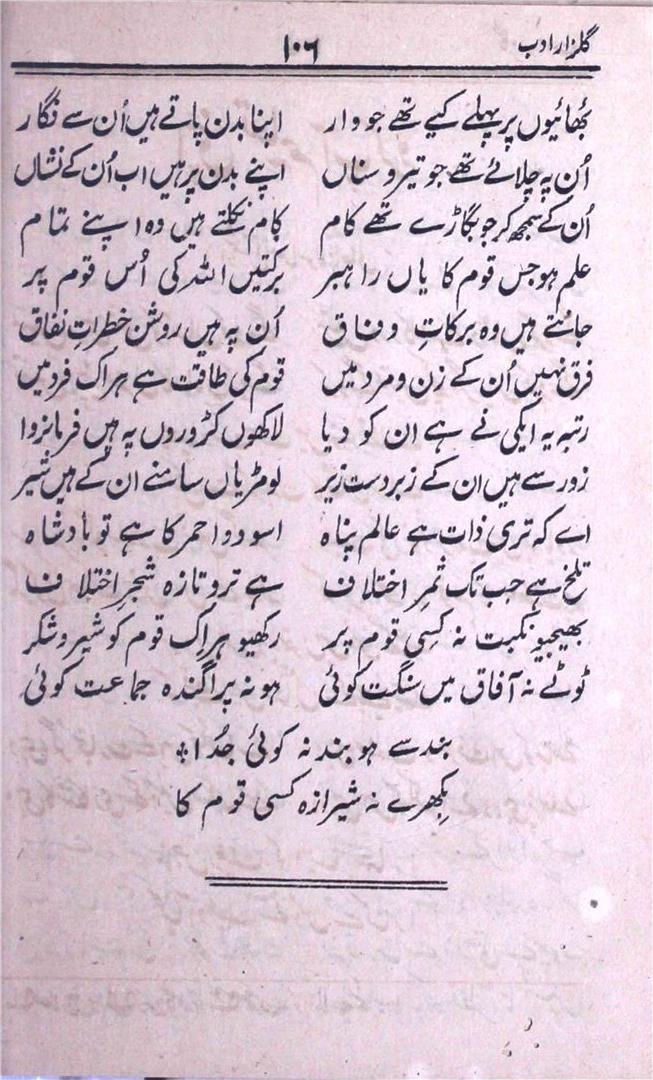 گلزار ادب ۱۰۶
بھائیوں پر پہلے کیے تھے جو وار اپنا بدن پاتے ہیں اُن سے نگار
اُن پہ چلائے تھے جو تیر و سناں اپنے بدن پر ہیں اب اُن کے نشاں
اُن کے سمجھ کر جو بگاڑے تھے کام کام نکلتے ہیں وہ اپنے تمام
علم ہو جس قوم کا یاں راہبر برکتیں اللہ کی اُس قوم پر
جانتے ہیں وہ برکاتِ وفاق اُن پہ ہیں روشن خطراتِ نفاق
فرق نہیں اُن کے زن و مرد میں قوم کی طاقت ہے ہر اک فرد میں
رتبہ یہ ایکی نے ہے ان کو دیا لاکھوں کڑوروں پہ ہیں فرمانروا
زور سے ہیں ان کے زبردست زیر لومڑیاں سامنے ان کے ہیں شیر
اے کہ تری ذات ہے عالم پناہ اسود و احمر کا ہے تو بادشاہ
تلخ ہے جب تک ثمرِ اختلاف ہے تر و تازہ شجرِ اختلاف
بھیجیو نکبت نہ کسی قوم پر رکھیو ہر اِک قوم کو شیر و شکر
ٹوٹے نہ آفاق میں سنگت کوئی ہو نہ پراگندہ جماعت کوئی
بند سے ہو بند نہ کوئی جُدا *
بکھرے نہ شیرازہ کسی قوم کا